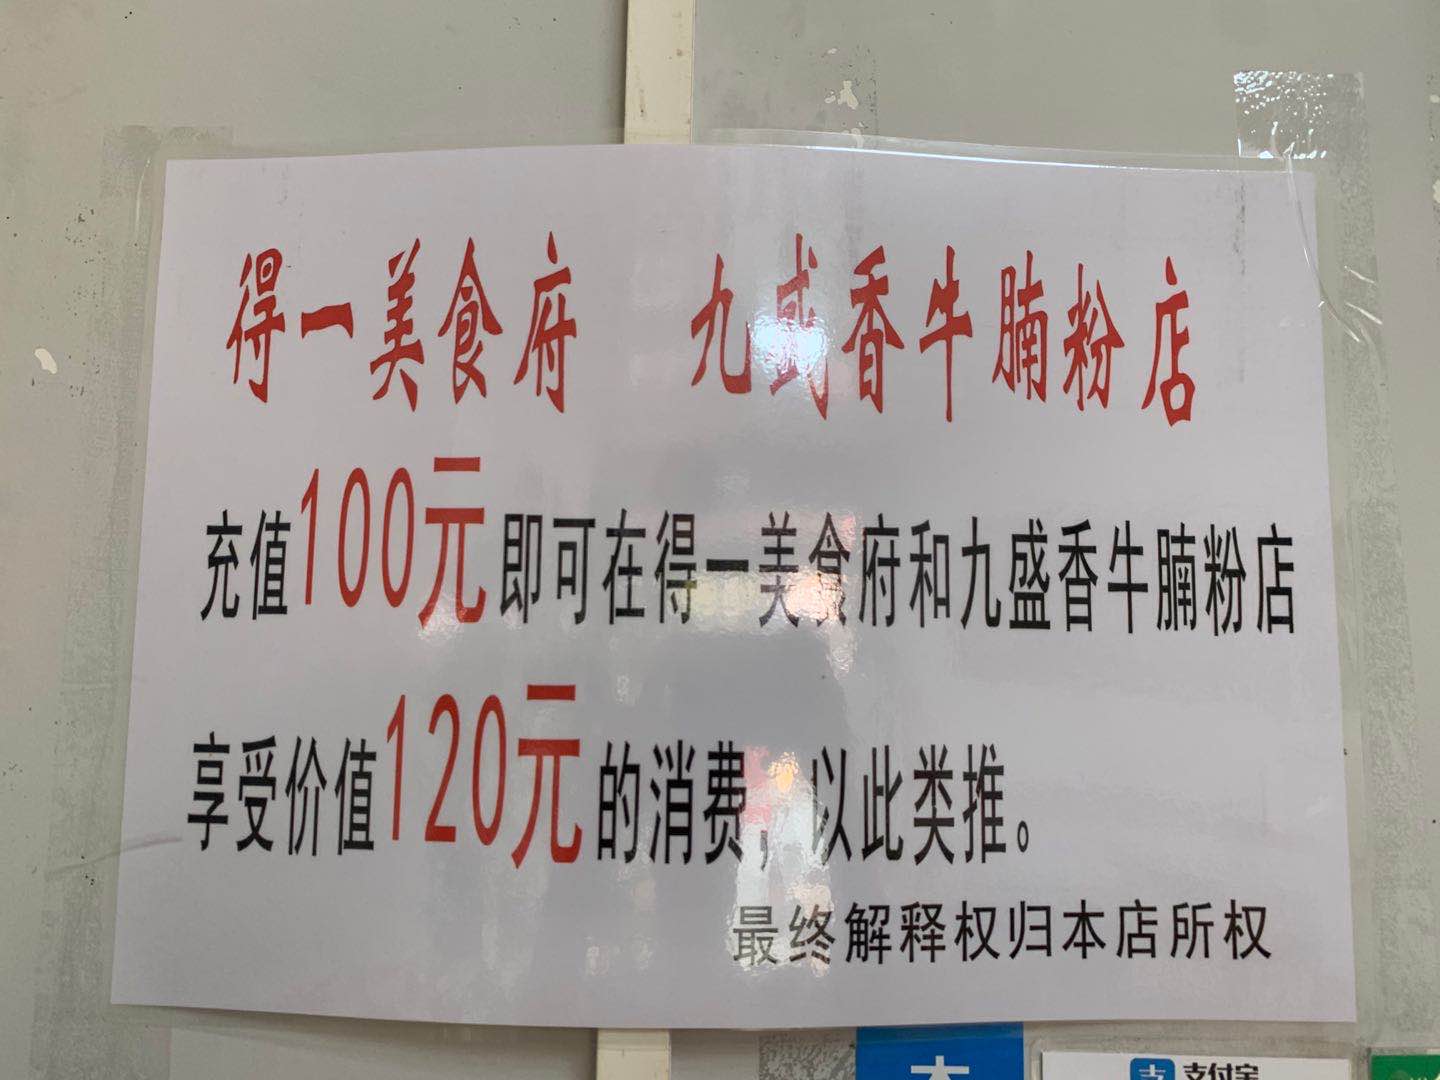 得一美食府 九盛香牛腩粉店
充值100元即可在得一美食府和九盛香牛腩粉店
享受价值120元的消费，以此类推。
最终解释权归本店所权
支付宝